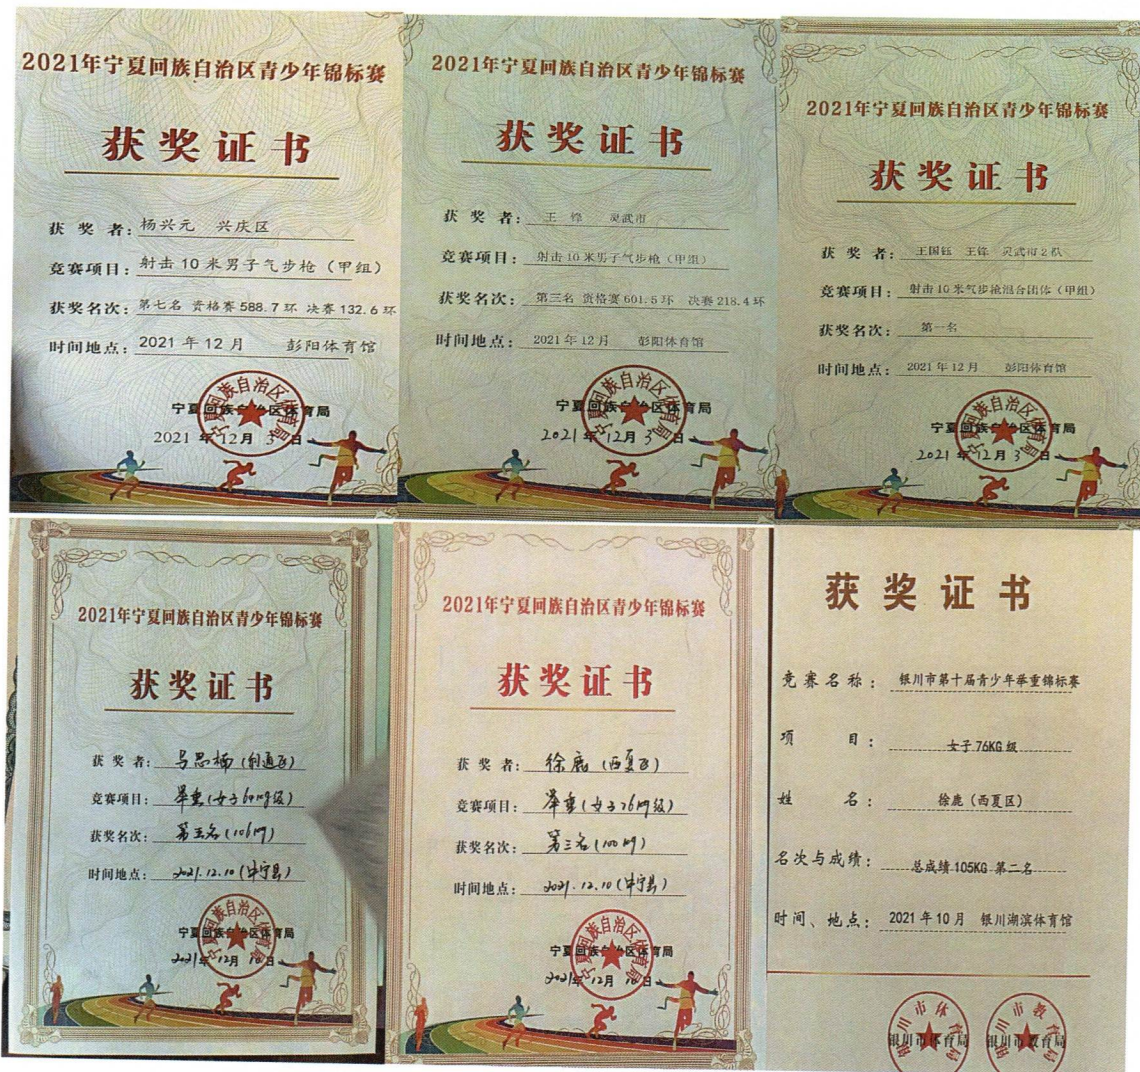 2021年宁夏回族自治区青少年锦标赛
获奖证书
获奖者：杨兴元 兴庆区
竞赛项目：射击10米男子气步枪（甲组）
获奖名次：第七名 资格赛588.7环 决赛132.6环
时间地点：2021年12月 彭阳体育馆
宁夏回族自治区体育局
2021年12月3日
2021年宁夏回族自治区青少年锦标赛
获奖证书
获奖者：王锋 灵武市
竞赛项目：射击10米男子气步枪（甲组）
获奖名次：第三名 资格赛601.5环 决赛218.4环
时间地点：2021年12月 彭阳体育馆
宁夏回族自治区体育局
2021年12月3日
2021年宁夏回族自治区青少年锦标赛
获奖证书
获奖者：王国钰 王锋 灵武市2队
竞赛项目：射击10米气步枪混合团体（甲组）
获奖名次：第一名
时间地点：2021年12月 彭阳体育馆
宁夏回族自治区体育局
2021年12月3日
2021年宁夏回族自治区青少年锦标赛
获奖证书
获奖者：马思楠（利通区）
竞赛项目：举重（女子64kg级）
获奖名次：第五名（106kg）
时间地点：2021.12.10（中宁县）
宁夏回族自治区体育局
2021年12月10日
2021年宁夏回族自治区青少年锦标赛
获奖证书
获奖者：徐鹿（西夏区）
竞赛项目：举重（女子76kg级）
获奖名次：第三名（100kg）
时间地点：2021.12.10（中宁县）
宁夏回族自治区体育局
2021年12月10日
获奖证书
竞赛名称：银川市第十届青少年举重锦标赛
项目：女子76KG级
姓名：徐鹿（西夏区）
名次与成绩：总成绩105KG 第二名
时间、地点：2021年10月 银川湖滨体育馆
银川市体育局 银川市教育局